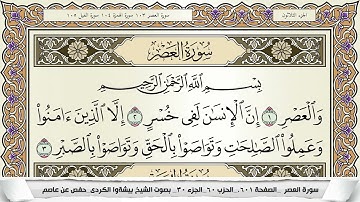 الجزء الثلاثون
سورة العصر ١٠٣ سورة الهمزة ١٠٤ سورة الفيل ١٠٥
سُورَةُ العَصْرِ
بِسْمِ اللَّهِ الرَّحْمَٰنِ الرَّحِيمِ
وَالْعَصْرِ ١ إِنَّ الْإِنسَٰنَ لَفِى خُسْرٍ ٢ إِلَّا الَّذِينَ ءَامَنُوا۟
وَعَمِلُوا۟ الصَّٰلِحَٰتِ وَتَوَاصَوْا۟ بِالْحَقِّ وَتَوَاصَوْا۟ بِالصَّبْرِ ٣
سورة العصر .. الصفحة ٦٠١ .. الحزب ٦٠ .. الجزء ٣٠ .. بصوت الشيخ بيشةوا الكردى .. حفص عن عاصم